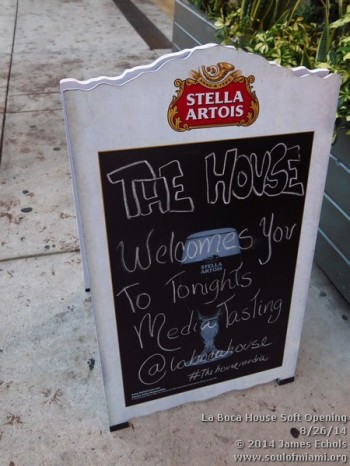 STELLA
ARTOIS
THE HOUSE
Welcomes You
STELLA
ARTOIS
To Tonights
Media Tasting
@labocahouse
#Thehousemedia
La Boca House Soft Opening
8/26/14
© 2014 James Echols
www.soulofmiami.org